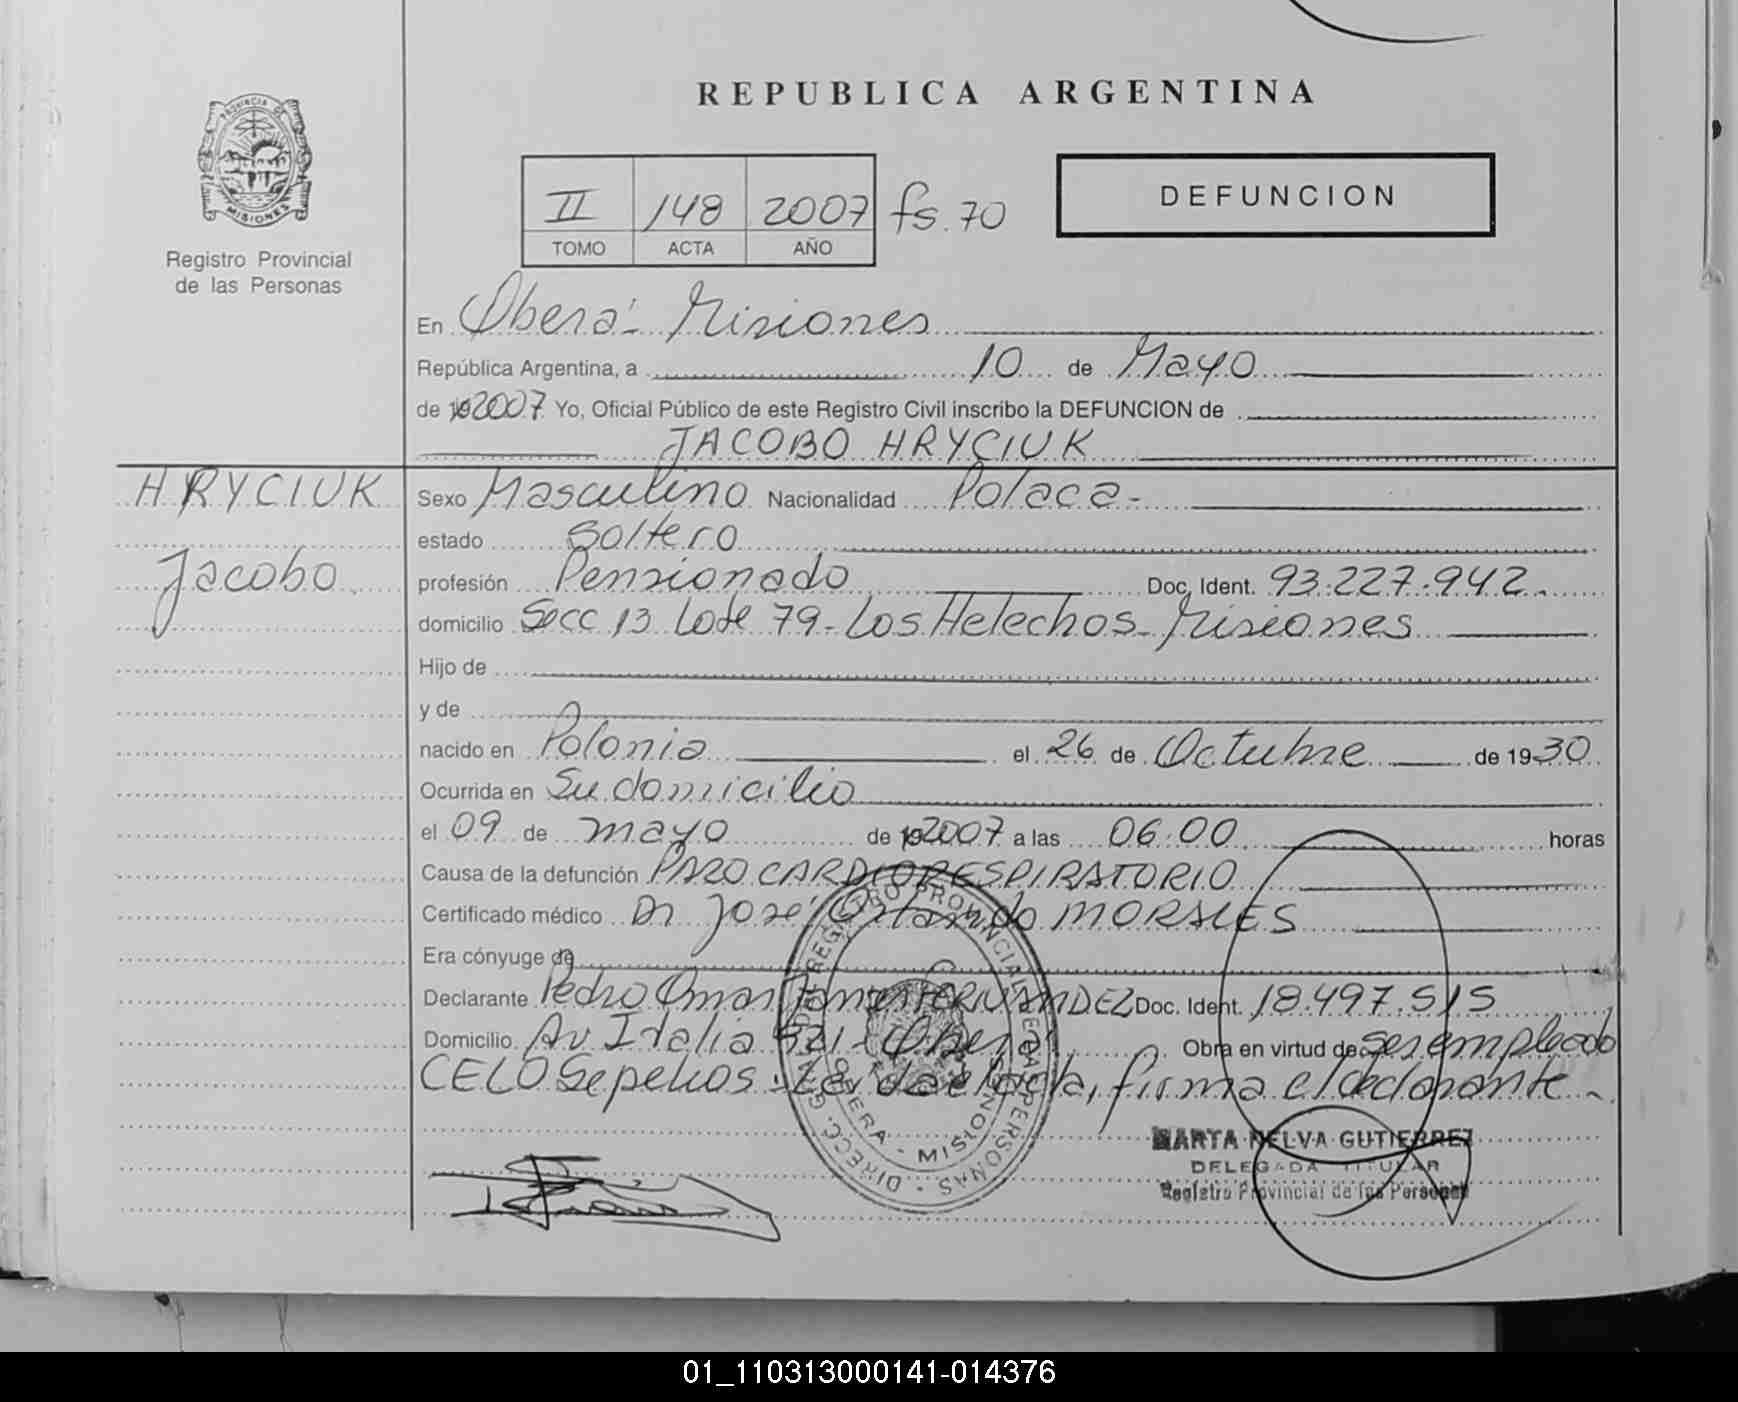 REPUBLICA ARGENTINA
PROVINCIA DE
MISIONES
Registro Provincial
de las Personas
II 148 2007 fs. 70
TOMO ACTA AÑO
DEFUNCION
En Oberá - Misiones
República Argentina, a 10 de Mayo
de 192007 Yo, Oficial Público de este Registro Civil inscribo la DEFUNCION de
JACOBO HRYCIUK
HRYCIUK
Jacobo
Sexo Masculino Nacionalidad Polaca -
estado Soltero
profesión Pensionado Doc. Ident. 93.227.942
domicilio Secc 13 Lote 79 - Los Helechos - Misiones
Hijo de
y de
nacido en Polonia el 26 de Octubre de 1930
Ocurrida en Su domicilio
el 09 de mayo de 192007 a las 06:00 horas
Causa de la defunción PARO CARDIORESPIRATORIO
Certificado médico Dr José Orlando MORALES
Era cónyuge de
Declarante Pedro Omar FERNANDEZ Doc. Ident. 18.497.515
Domicilio Av Italia - Oberá Obra en virtud de ser empleado
CELO Sepelios - Leída el acta, firma el declarante
DIRECC. G. DEL REGISTRO PROVINCIAL DE LAS PERSONAS
OBERA - MISIONES
MARTA NELVA GUTIERREZ
DELEGADA TITULAR
Registro Provincial de las Personas
01_110313000141-014376